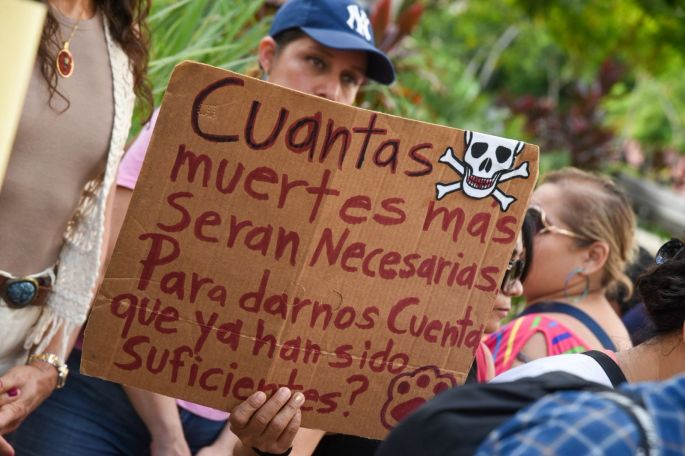 NY
Cuantas
muertes mas
Seran Necesarias
Para darnos Cuenta
que ya han sido
suficientes?